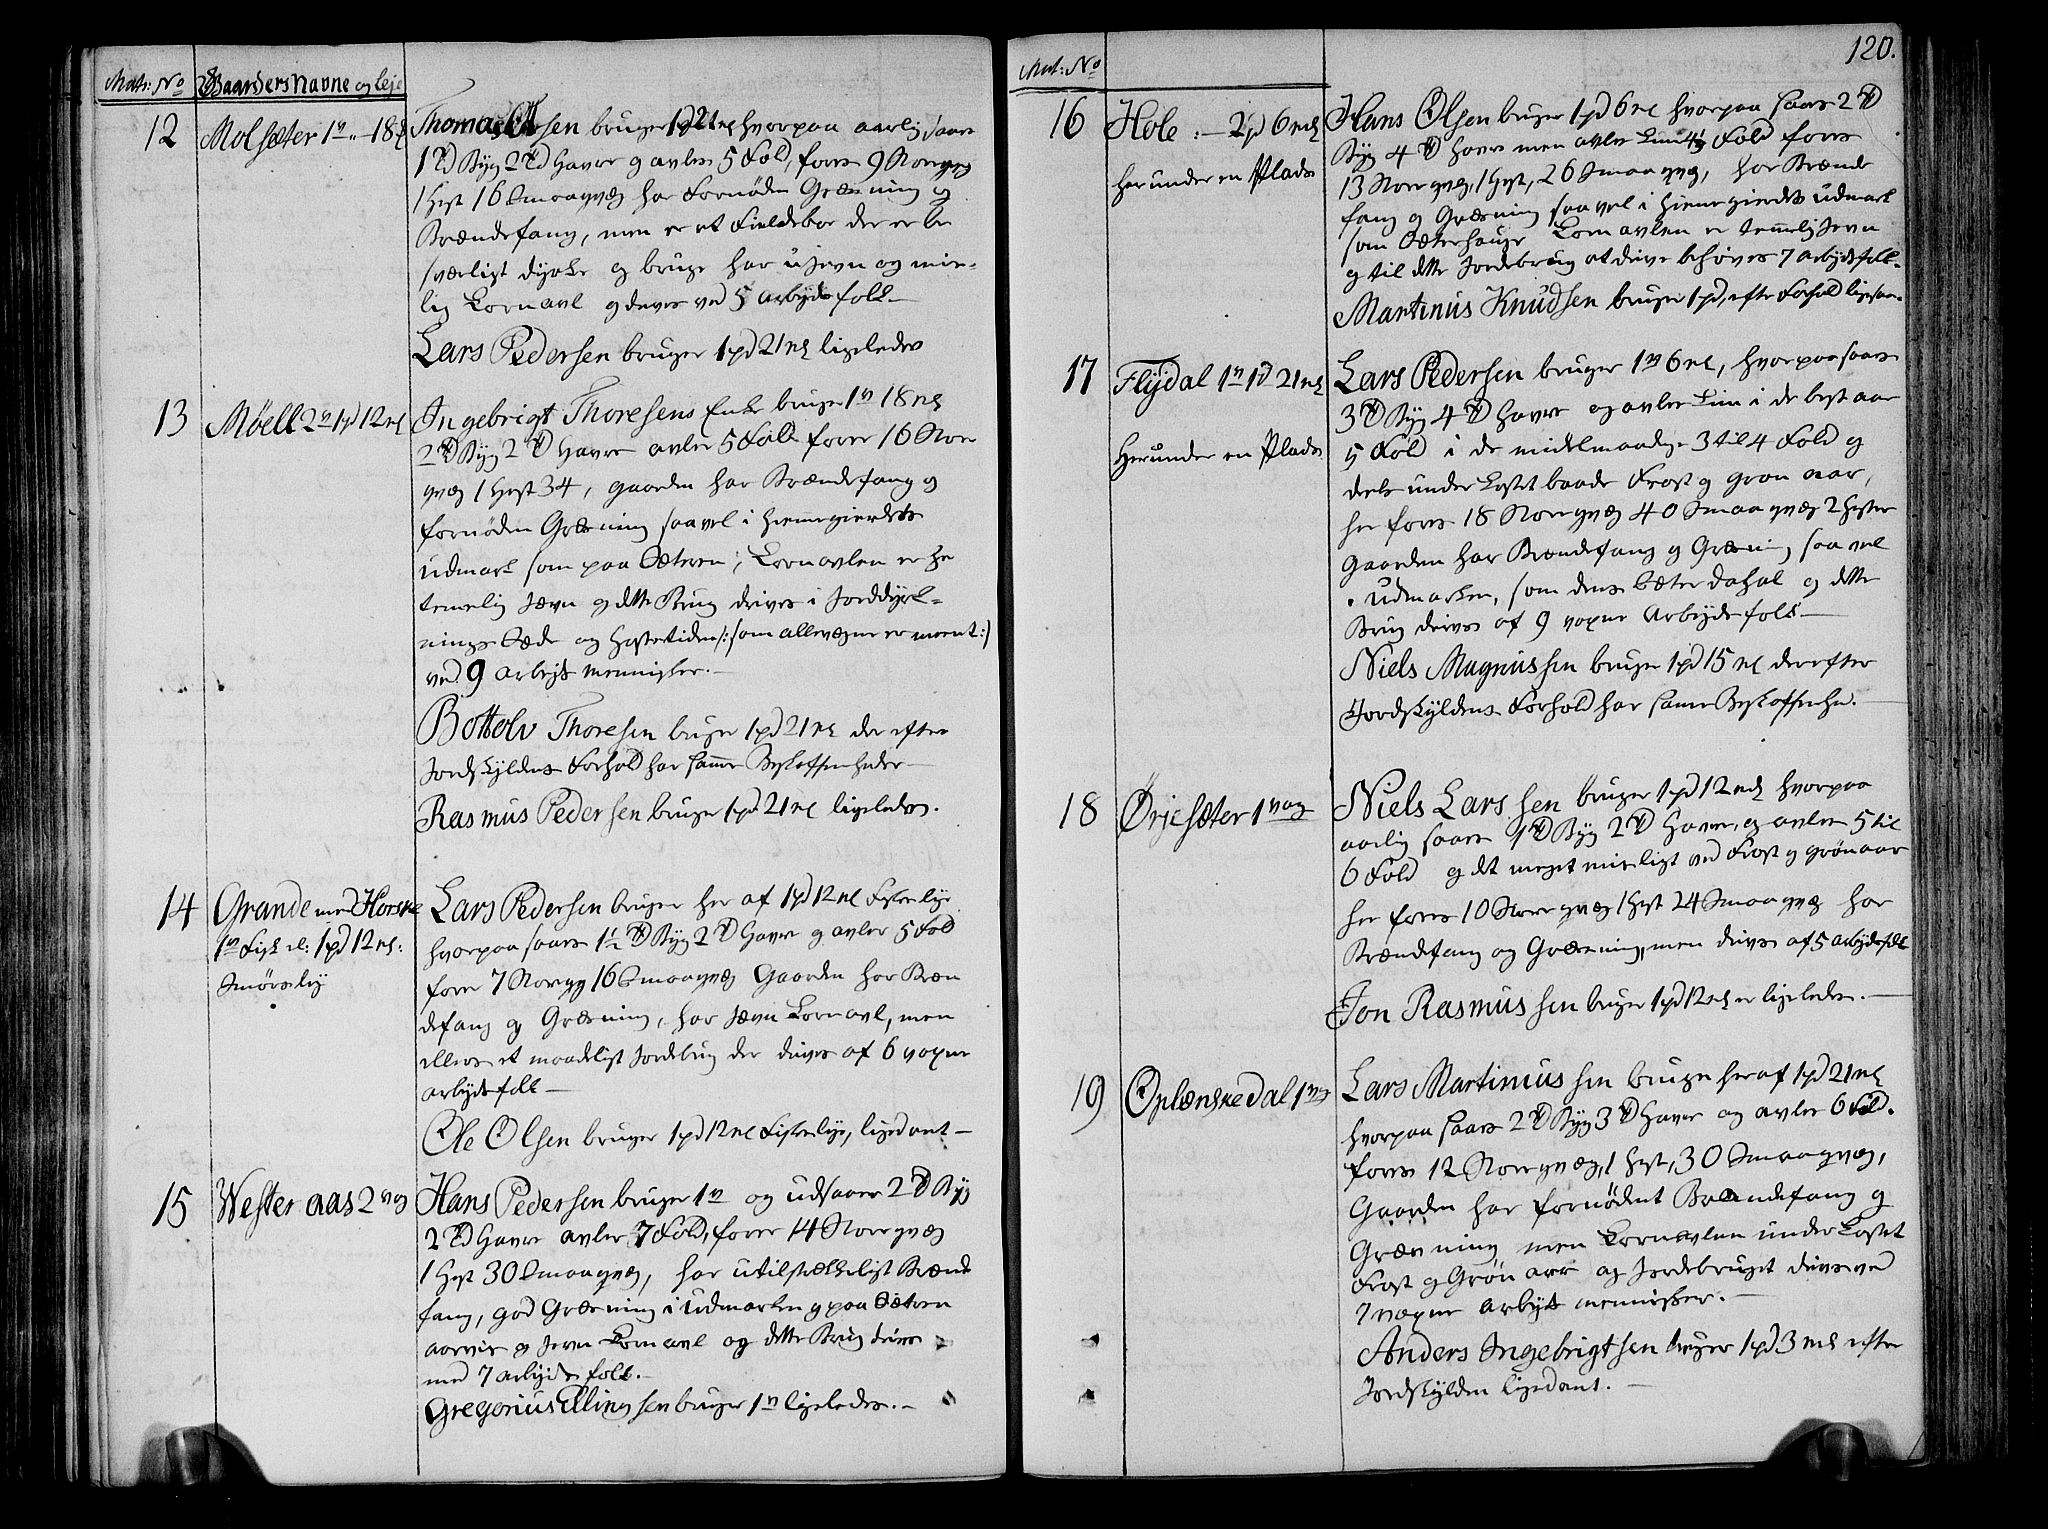 Matr: No
Gaarders Navne og leje
12
Molsæter 1 v: " 18 ȝ
Thomas Olsen bruger 1 pd 21 mk hvorpaa aarlig saaes
1 Td Byg 2 Td Havre og avles 5 Fold, föres 9 Storqvæg
1 Hest 16 Smaaqvæg har Fornöden Græsning og
Brændefang, men er et Fieldeböe der er be
sværligt dyrke og bruge har ujevn og mis-
lig Kornavl og drives ved 5 Arbejdsfolk.
Lars Pedersen bruger 1 pd 21 mk ligeledes
13
Möell 2 v 1 pd 12 mk
Ingebrigt Thoresens Enke bruger 1 v 18 mk
2 Td Byg 2 Td Havre avler 5 Fold föder 16 Stor
qvæg 1 Hest 34, gaarden har Brændefang og
fornöden Græsning saavel i Hiemegierdets
udmark som paa Sæteren; Kornavlen er her
temelig Jævn og dette Brug drives i Jorddyrk-
nings Sæde og Höstetiden /: som allevegne er meent :/
ved 9 arbejds mennisker.
Bottolv Thoresen bruger 1 pd 21 mk der efter
Jordskyldens Forhold har samme Beskaffenheder
Rasmus Pedersen bruger 1 pd 21 mk ligeledes.
14
Grande med Horske
1 v Fisk el: 1 pd 12 mk:
Smörsleij
Lars Pedersen bruger her af 1 pd 12 mk Fiskeleje
hvorpaa saaes 1½ Td Byg 2 Td Havre og avler 5 Fold
föder 7 Storqvæg 16 Smaaqvæg Gaarden har Bræn
defang og Græsning, har Jævn Kornavl, men
ellers et maadeligt Jordebrug der drives af 6 voxne
arbejdsfolk
Ole Olsen bruger 1 pd 12 mk Fiskeleje, ligedant
15
Wester aas 2 vog
Hans Pedersen bruger 1 v og udsaaer 2 Td Byg
2 Td Havre avler 7 Fold, föder 14 Storqvæg
1 Hest 30 Smaaqvæg, har utilstrækkeligt Brænde
fang, god Græsning i Udmarken og paa Sæteren
aarvis og Jevn Kornavl og dette Brug drives
med 7 arbejdsfolk.
Gregorius Ellingsen bruger 1 v ligeledes.
120.
Mat: No
16
Hole :- 2 pd 6 mk
herunder en Plads
Hans Olsen bruger 1 pd 6 mk hvorpaa saaes 2 Td
Byg 4 Td Havre men avler kun 4½ Fold föder
13 Storqvæg, 1 Hest, 26 Smaaqvæg, har Brænde
fang og Græsning saavel i Hiemegierdets udmark
som Sæterhauge Kornavlen er temelig Jevn
og til dette Jordebrug at drive behöves 7 arbejdsfolk.
Martinus Knudsen bruger 1 pd, efter Forhold ligesaa.
17
Flydal 1 v 1 pd 21 mk
Herunder en Plads
Lars Pedersen bruger 1 v 6 mk, hvorpaa saaes
3 Td Byg 4 Td Havre og avler kun i de best aar
5 Fold i de midelmaadige 3 til 4 Fold og
dels underkastet baade Frost og grön aar,
her föres 18 Storqvæg 40 Smaaqvæg 2 Hester
Gaarden har Brændefang og Græsning saavel
i Udmarken, som dens Sæter Dahal og dette
Brug drives af 9 voxne Arbejdsfolk
Niels Magnussen bruger 1 pd 15 mk derefter
Jordskyldens Forhold har samme Beskaffenhed.
18
Örjesæter 1 vog
Niels Larssen bruger 1 pd 12 mk hvorpaa
aarlig saaes 1 Td Byg 2 Td Havre, og avler 5 til
6 Fold og det meget misligt ved Frost og grönaar
her föres 10 Storqvæg 1 Hest 24 Smaaqvæg har
Brændefang og Græsning, men drives af 5 arbejdsfolk
Jon Rasmussen bruger 1 pd 12 mk er ligeledes.
19
Oplænskedal 1 vog
Lars Martinussen bruger heraf 1 pd 21 mk
hvorpaa saaes 2 Td Byg 3 Td Havre og avler 6 Fold.
föres 12 Storqvæg, 1 Hest, 30 Smaaqvæg,
Gaarden har fornödent Brændefang og
Græsning men Kornavlen underkastet
Frost og Grön aar og Jordebruget drives ved
7 voxne arbejds mennisker.
Anders Ingebrigtsen bruger 1 pd 3 mk efter
Jordskylden ligedant.